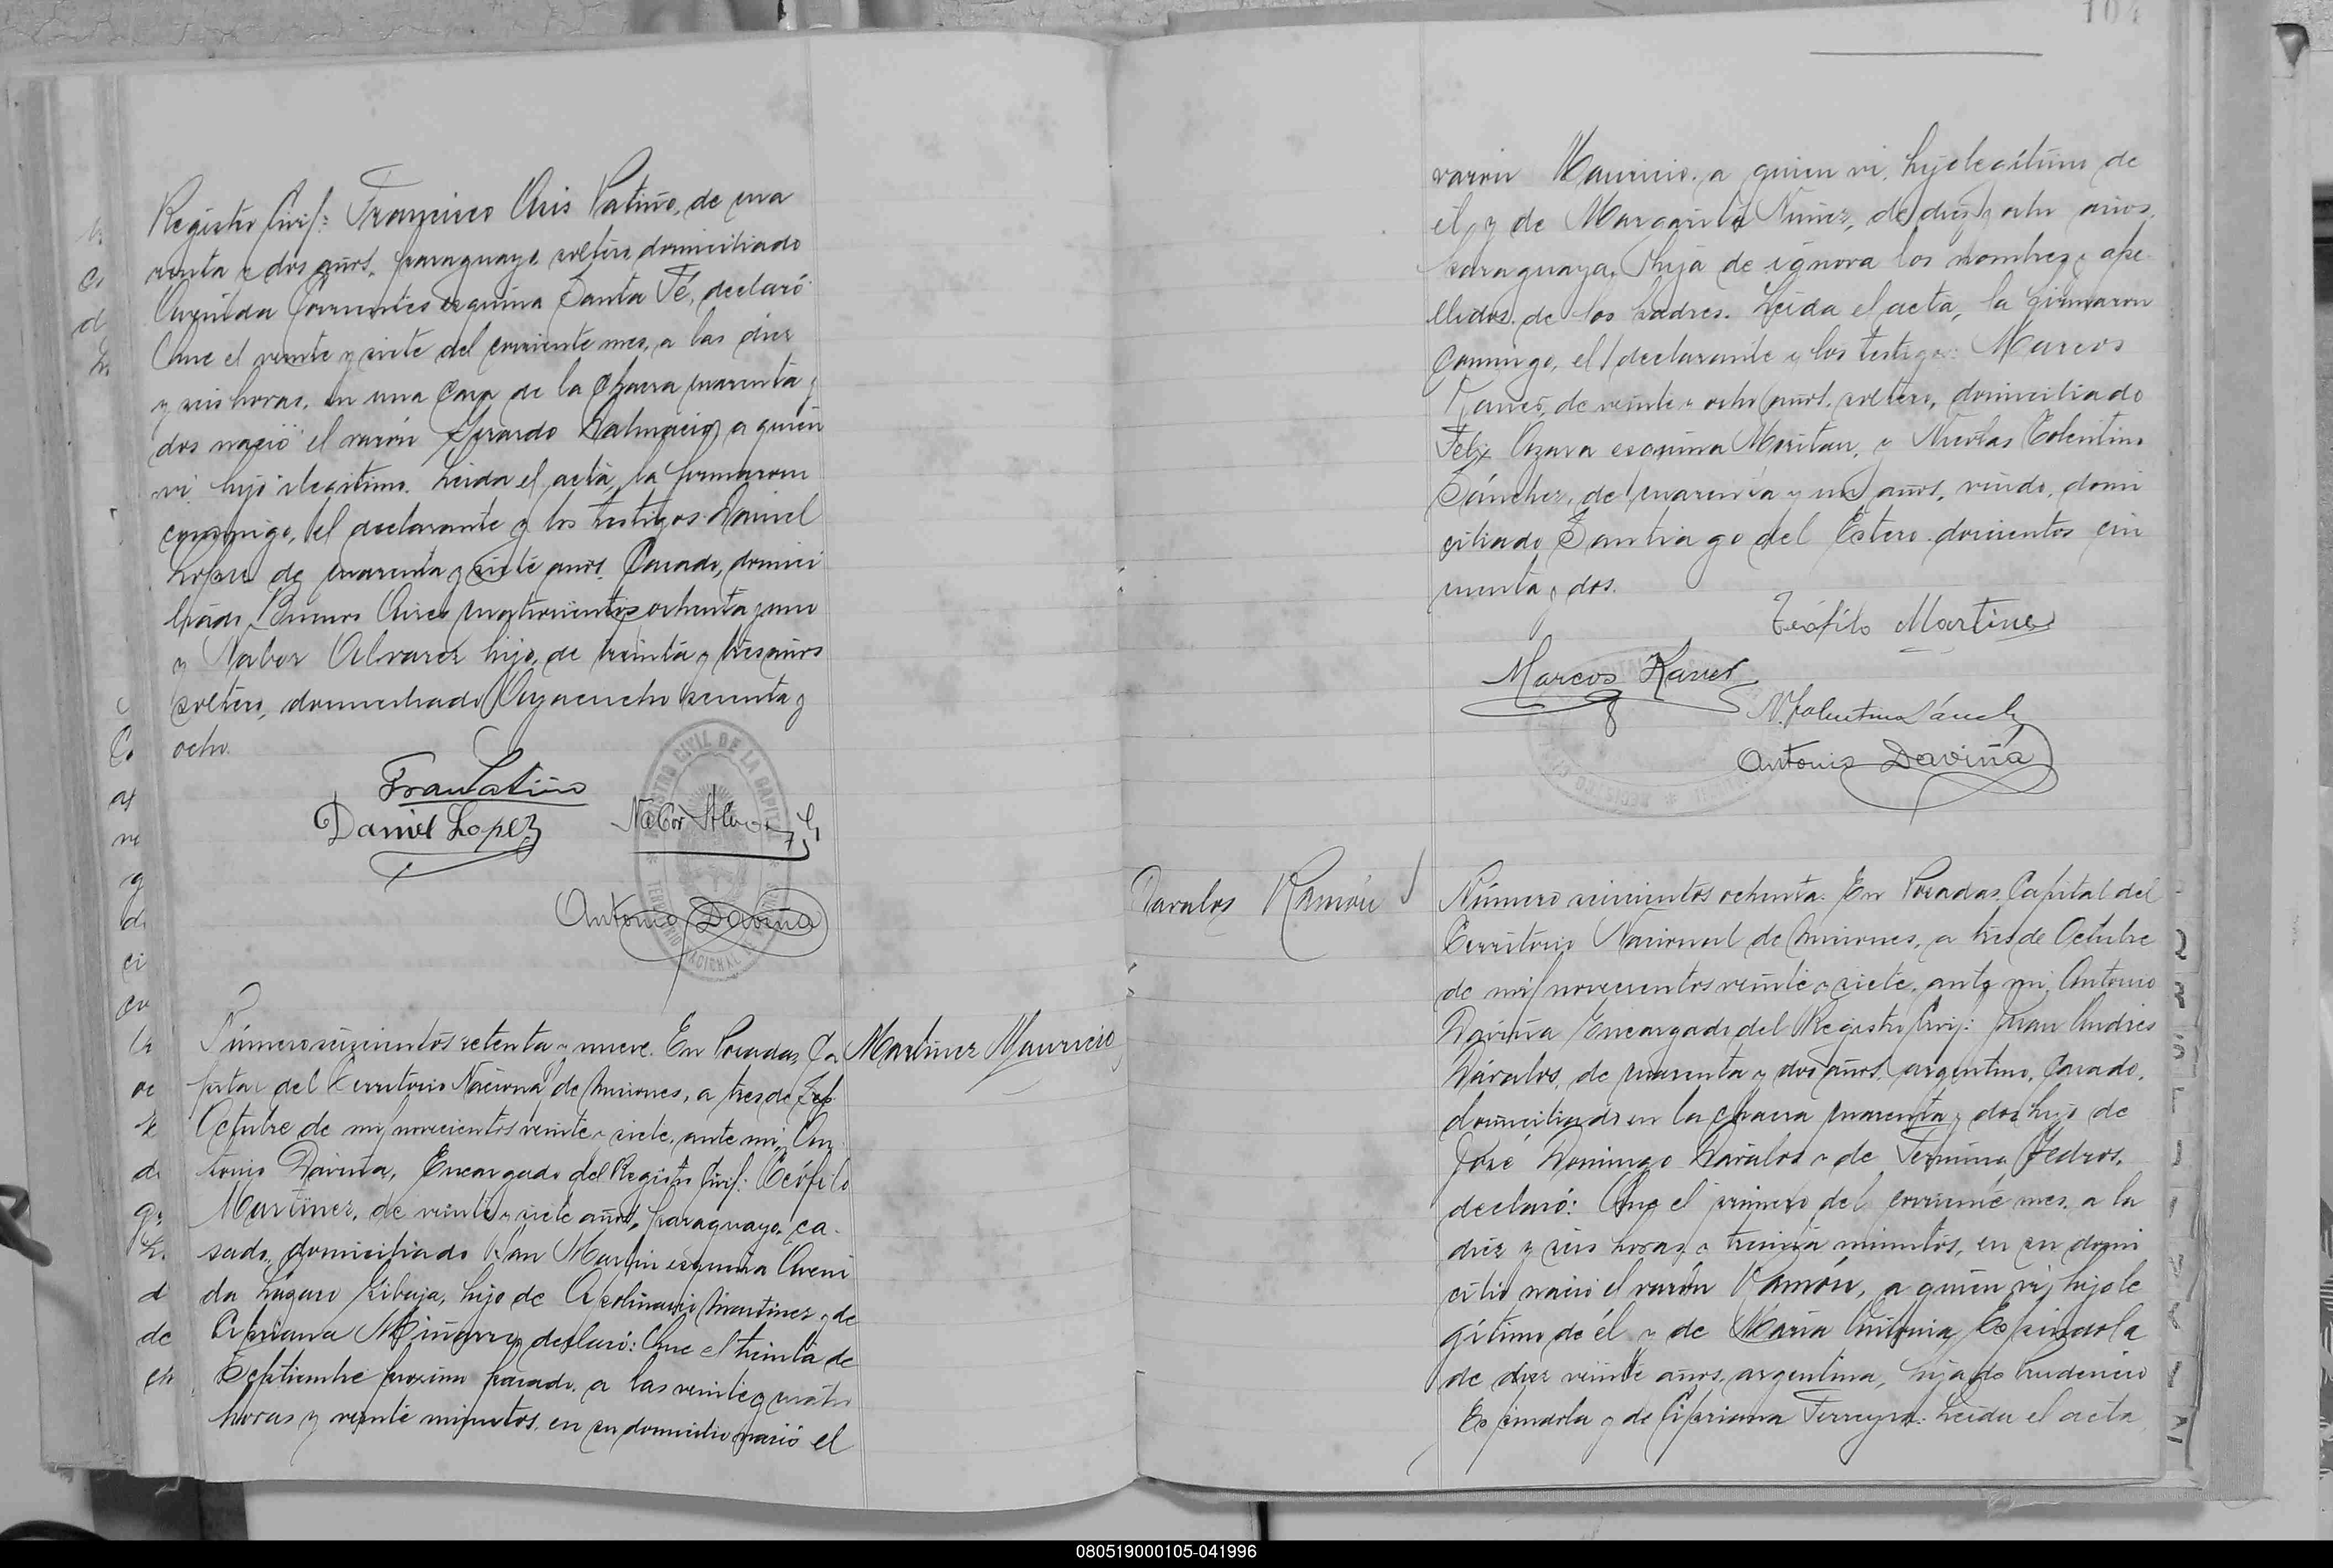 104
Registro Civil: Francisco Luis Patiño, de cua
renta y dos años, paraguayo, soltero domiciliado
Avenida Corrientes esquina Santa Fé, declaró:
Que el veinte y siete del corriente mes, a las diez
y seis horas, en una casa de la chacra cuarenta y
dos nació el varón Gerardo Dalmacio, a quien
vi, hijo ilegitimo. Leida el acta, la firmaron
conmigo, el declarante y los testigos: Daniel
Lopez de cuarenta y siete años, casado, domici
liado Buenos Aires cuatrocientos ochenta y uno
y Nabor Alvarez hijo, de treinta y tres años
soltero, domiciliado Ayacucho sesenta y
ocho.
Fran Patiño
Daniel Lopez
Nabor Alvarez
REGISTRO CIVIL DE LA CAPITAL
TERRITORIO NACIONAL
Antonio Daviña
Martinez Mauricio
Número seiscientos setenta y nueve. En Posadas, Ca
pital del Territorio Nacional de Misiones, a tres de Sep
Octubre de mil novecientos veinte y siete, ante mi, An
tonio Daviña, Encargado del Registro Civil: Teófilo
Martinez, de veinte y siete años, paraguayo, ca-
sado, domiciliado San Martin esquina Aveni
da Lázaro Gibaja, hijo de Apolinario Martinez y de
Cipriana Miñarro, declaró: Que el treinta de
Septiembre proximo pasado, a las veinte y cuatro
horas y veinte minutos, en su domicilio nació el
varón Mauricio, a quien vi, hijo legítimo de
él y de Margarita Nuñez, de diez y ocho años,
paraguaya, hija de ignora los nombres y ape-
llidos de los padres. Leida el acta, la firmaron
conmigo, el declarante y los testigos: Marcos
Kaner, de veinte y ocho años, soltero, domiciliado
Felix Azara esquina Moritan, y Nicolas Tolentino
Sánchez, de cuarenta y un años, viudo, domi
ciliado Santiago del Estero doscientos cin
cuenta y dos.
Teófilo Martinez
Marcos Kaner
N. Tolentino Sánchez
Antonio Daviña
Davalos Ramón
Número seiscientos ochenta. En Posadas, Capital del
Territorio Nacional de Misiones, a tres de Octubre
de mil novecientos veinte y siete, ante mi, Antonio
Daviña Encargado del Registro Civil: Juan Andrés
Dávalos, de cuarenta y dos años, argentino, casado,
domiciliado en la chacra cuarenta y dos hijo de
José Domingo Dávalos y de Fermina
declaró: Que el primero del corriente mes, a la
diez y seis horas y treinta minutos, en su domi
cilio nació el varón Ramón, a quien vi, hijo le
gítimo de él y de Maria Antonia Espindola
de diez veinte años, argentina, hija de Prudencio
Espindola y de Cipriana Ferreyra. Leida el acta
080519000105-041996